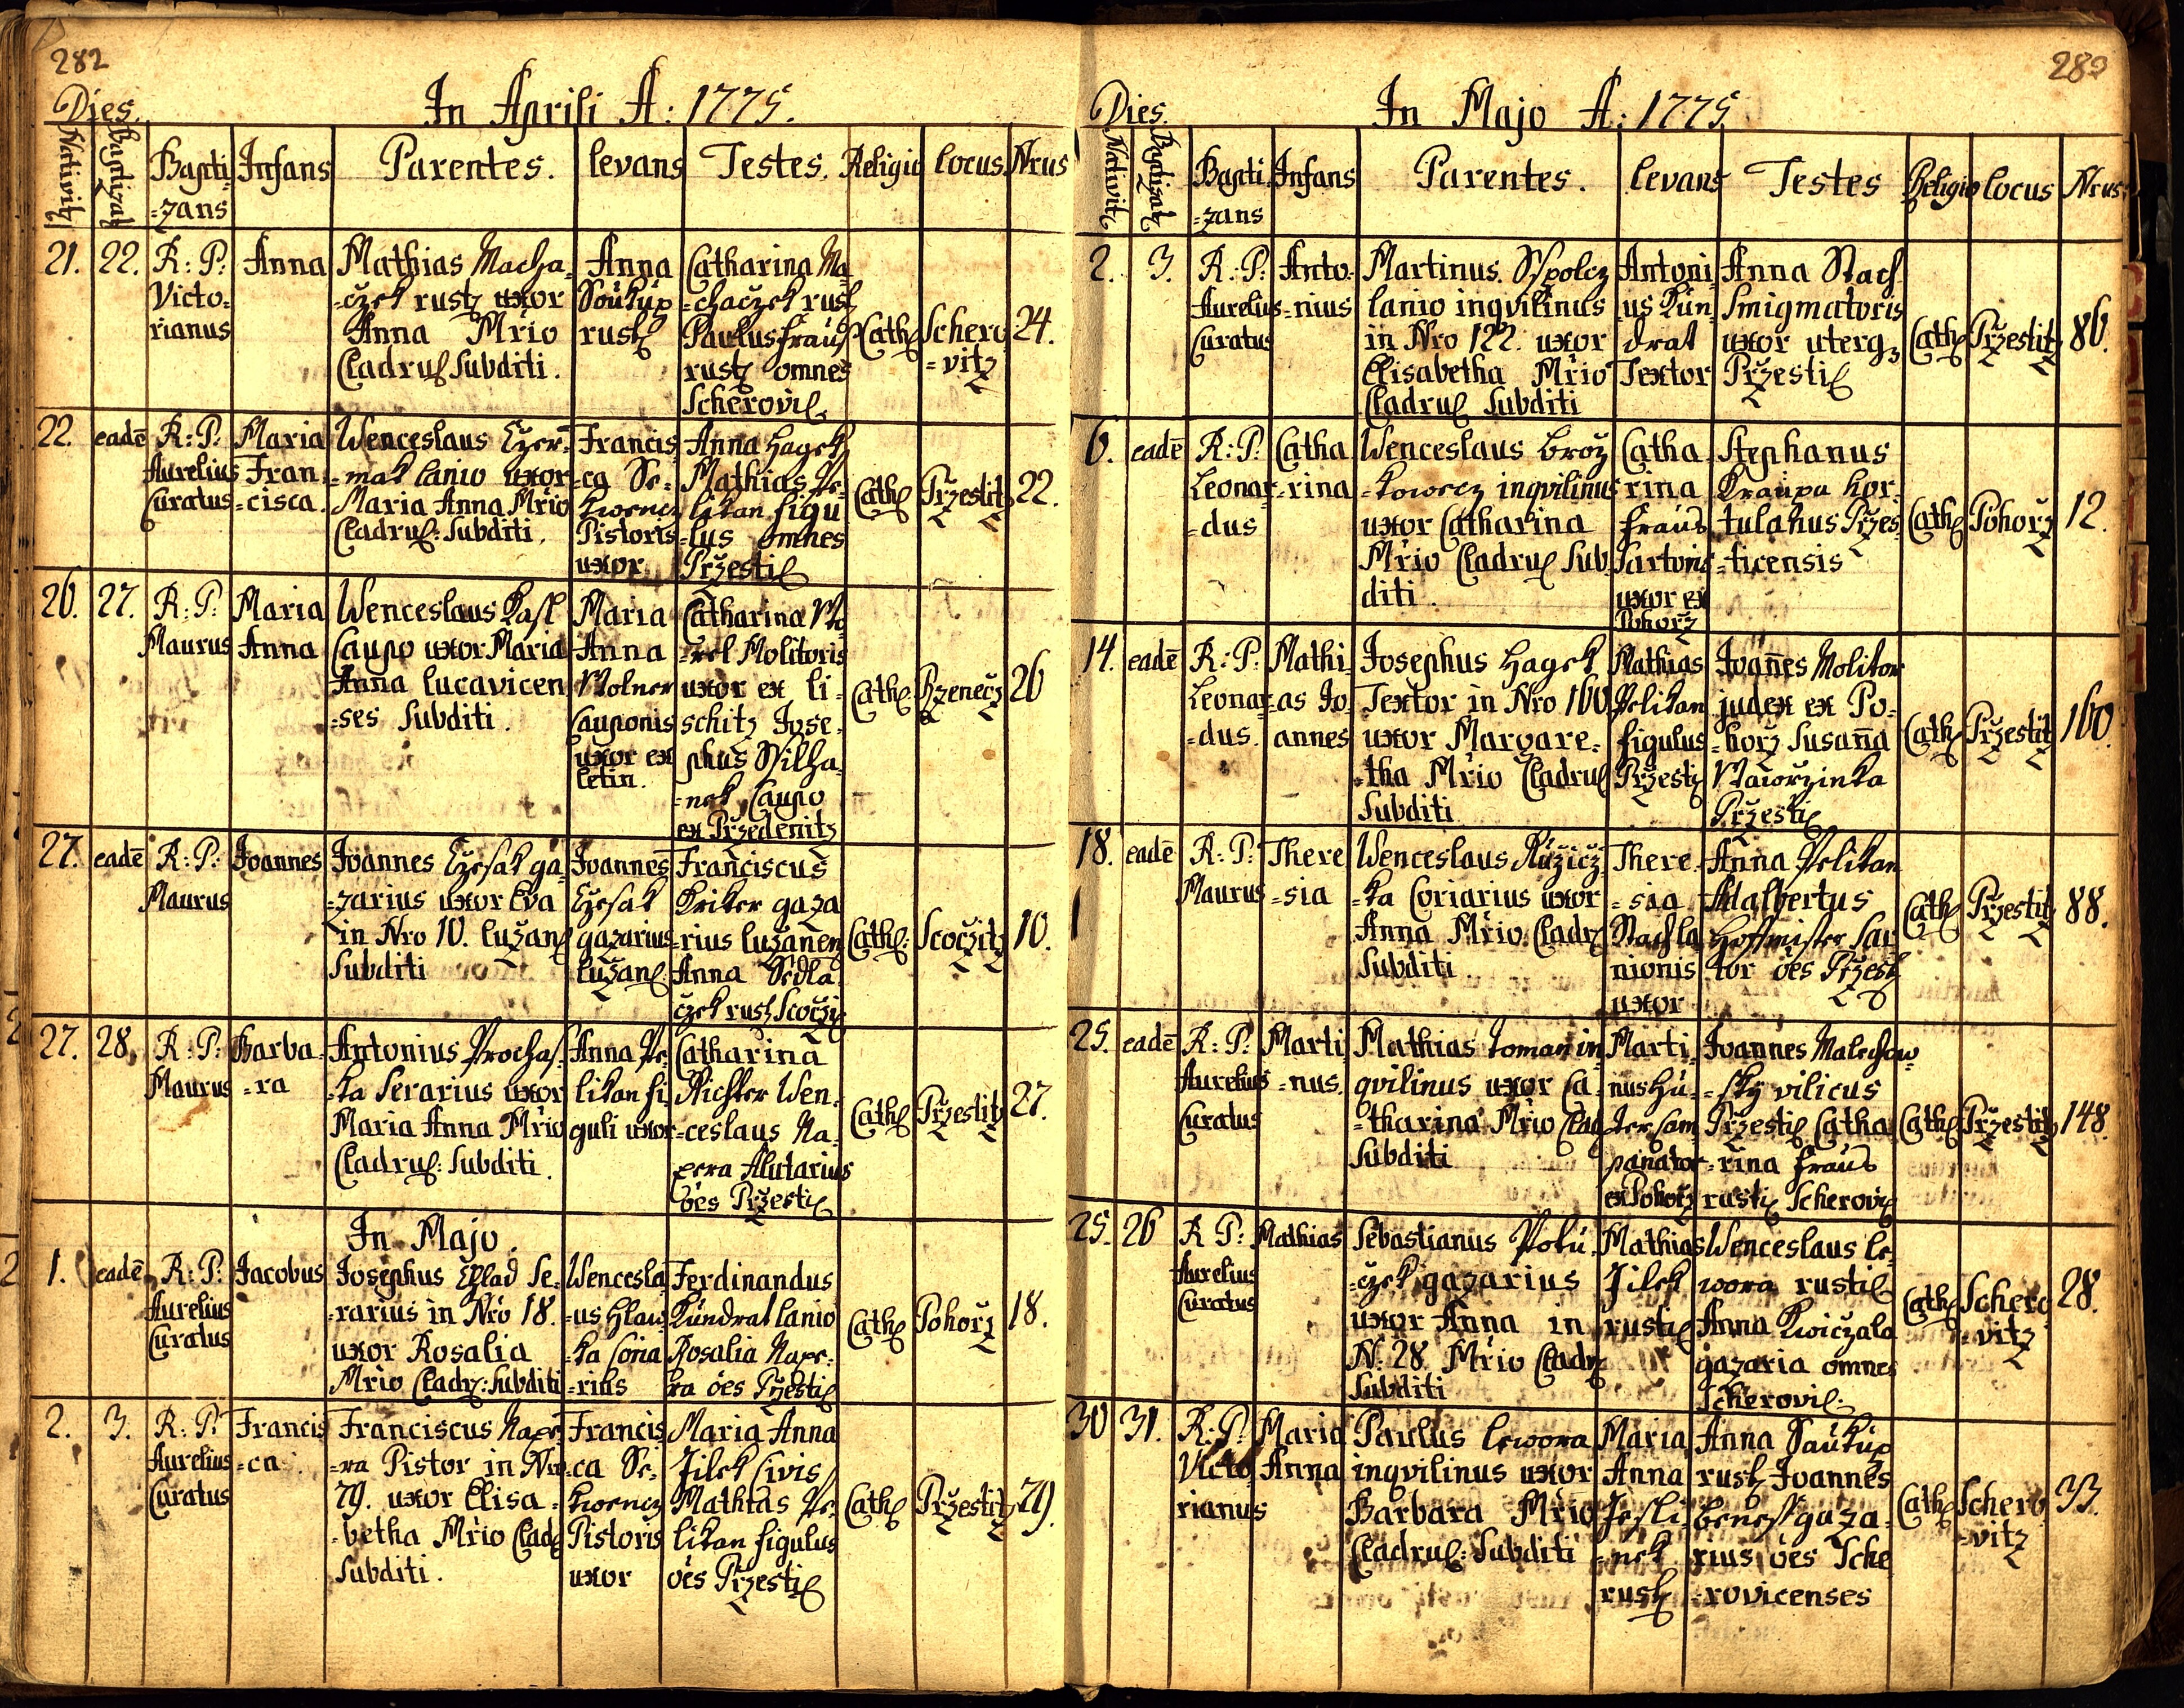 282
Dies.
In Aprili A: 1775.
Nativit
Baptizat
Bapti
=zans
Infans
Parentes.
levans
Testes.
Religio
locus.
Nrus
21.
22.
R: P:
Victo=
rianus
Anna
Mathias Macha=
=czek rust uxor
Anna Mřio
Cladrus Subditi.
Anna
Soukup
rust
Catharina Ma
=chaczek rust
Paulus Fraus
rust omnes
Scherovic
Cath
Schero
=vitz
24.
22.
eadē
R: P:
Aurelius
Curatus
Maria
Fran
=cisca.
Wenceslaus Czer=
=mak lanio uxor
Maria Anna Mřio
Cladrus: Subditi.
Francis
=ca Se=
kwencz
Pistoris
uxor
Anna Hagek
Mathias Pe=
likan figu
=lus omnes
Pržestic
Cath
Pržestitz
22.
26.
27.
R: P:
Maurus
Maria
Anna
Wenceslaus Kasl
Caupo uxor Maria
Anna lucavicen
=ses Subditi.
Maria
Anna
Wolner
Cauponis
uxor ex
letin.
Catharina Wo
=zel Molitoris
uxor ex li=
schitz Jose=
phus Wilha=
=nek Caupo
ex Przedenitz
Cath
Rzenecz
26
27.
eadē
R: P:
Maurus
Joannes
Joannes Czesak ga=
=zarius uxor Eva
in Nro 10. lužan
Subditi
Joannes
Czesak
gazarius
lužan
Franciscus
Kriker gaza
rius lužanen
Anna Sedla=
czek rust Scoczic
Cath:
Scočitz
10.
27.
28.
R: P:
Maurus
Barba=
=ra
Antonius Prochas=
=ka Serarius uxor
Maria Anna Mřio
Cladrus: Subditi.
Anna Pe
likan fi
guli uxor
Catharina
Richter Wen=
=ceslaus Na=
pera Alutarius
ōes Pržestic
Cath
Pržestitz
27.
In Majo.
1.
eadē
R: P:
Aurelius
Curatus
Jacobus
Josephus Chlad Se=
=rarius in Nro 18.
uxor Rosalia
Mřio Cladr: Subditi
Wencesla
=us Hlaw
=ka Coria
=rius
Ferdinandus
Kundrat lanio
Rosalia Nape=
ra ōes Pržestic
Cath
Pohorz
18.
2.
3.
R: P:
Aurelius
Curatus
Francis
=ca
Franciscus Nape
=ra Pistor in Nro
79. uxor Elisa=
=betha Mřio Clad
Subditi.
Francis
=ca Se=
kwencz
Pistoris
uxor
Maria Anna
Jilek Civis
Mathias Pe=
likan figulus
ōes Pržestic
Cath
Pržestitz
79.
283
Dies.
In Majo A: 1775
Nativit
Baptizat
Bapti
=zans
Infans
Parentes.
levans
Testes
Religio
locus
Nrus
2.
3.
R: P:
Aurelius
Curatus
Anto=
=nius
Martinus Spolcz
lanio inqvilinus
in Nro 122. uxor
Elisabetha Mřio
Cladrus Subditi
Antoni
us Kun=
drat
Textor
Anna Stach
Smigmatoris
uxor uterq
Pržestic
Cath
Pržestitz
86.
6.
eadē
R: P:
Leonar
=dus
Catha
=rina
Wenceslaus Broz
=kowecz inqvilinus
uxor Catharina
Mřio Cladrus Sub
diti.
Catha
rina
Fraus
Sartoris
uxor ex
Pohorz
Stephanus
Kraupa hor=
tulanus Pržes=
=ticensis
Cath
Pohorz
12.
14.
eadē
R: P:
Leonar
=dus.
Mathi=
as Jo=
annes
Josephus Hagek
Textor in Nro 160
uxor Margare=
=tha Mřio Cladrus
Subditi
Mathias
Pelikan
figulus
Pržestic
Joannes Molitor
judex ex Po=
=horz Susanna
Waiorzinka
Pržestic
Cath
Pržestitz
160.
18.
eadē
R: P:
Maurus
There
=sia
Wenceslaus Ružicz
=ka Coriarius uxor
Anna Mřio Cladr
Subditi.
There=
=sia
Stach la
nionis
uxor
Anna Pelikan
Adalbertus
Hoffmister Sar
tor ōes Pržest
Cath
Pržestitz
88.
25.
eadē
R: P:
Aurelius
Curatus
Marti
=nus.
Mathias Toman in
qvilinus uxor Ca=
=tharina Mřio Clad
Subditi
Marti=
nus Hu=
ter Cam
panator
ex Pohorz
Joannes Malechow=
=sky vilicus
Pržestic Catha
=rina Fraus
rusti Scherovic
Cath
Pržestitz
148.
25.
26
R P:
Aurelius
Curatus
Mathias
Sebastianus Poku=
=czek gazarius
uxor Anna in
N: 28. Mřio Cladr
Subditi
Mathias
Jilek
rusti
Wenceslaus Le=
wora rusti
Anna Kwiczala
gazaria omnes
Scherovic:
Cath
Schero
=vitz
28.
30
31.
R: P:
Victo
rianus
Maria
Anna
Paulus Lewora
inqvilinus uxor
Barbara Mřio
Cladrus: Subditi
Maria
Anna
Jesli
=nek
rust
Anna Saukup
rust Joannes
Benes gaza=
rius ōes Sche
rovicenses
Cath
Schero
=vitz
33.